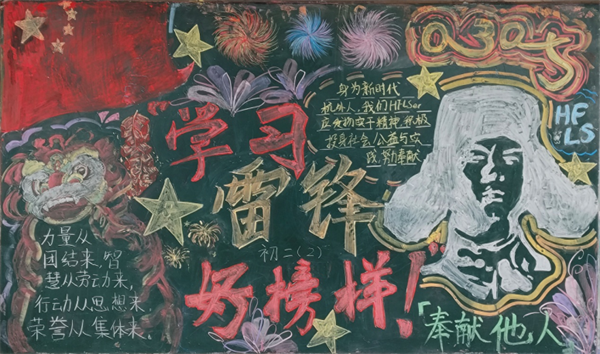 0305
HF
LS
身为新时代
杭外人,我们HFLSer
投身社会公益与实
践,勤奉献
"学习
雷锋
初二(2)
好榜样!"
力量从
团结来,智
慧从劳动来,
行动从思想来,
荣誉从集体来。
「奉献他人